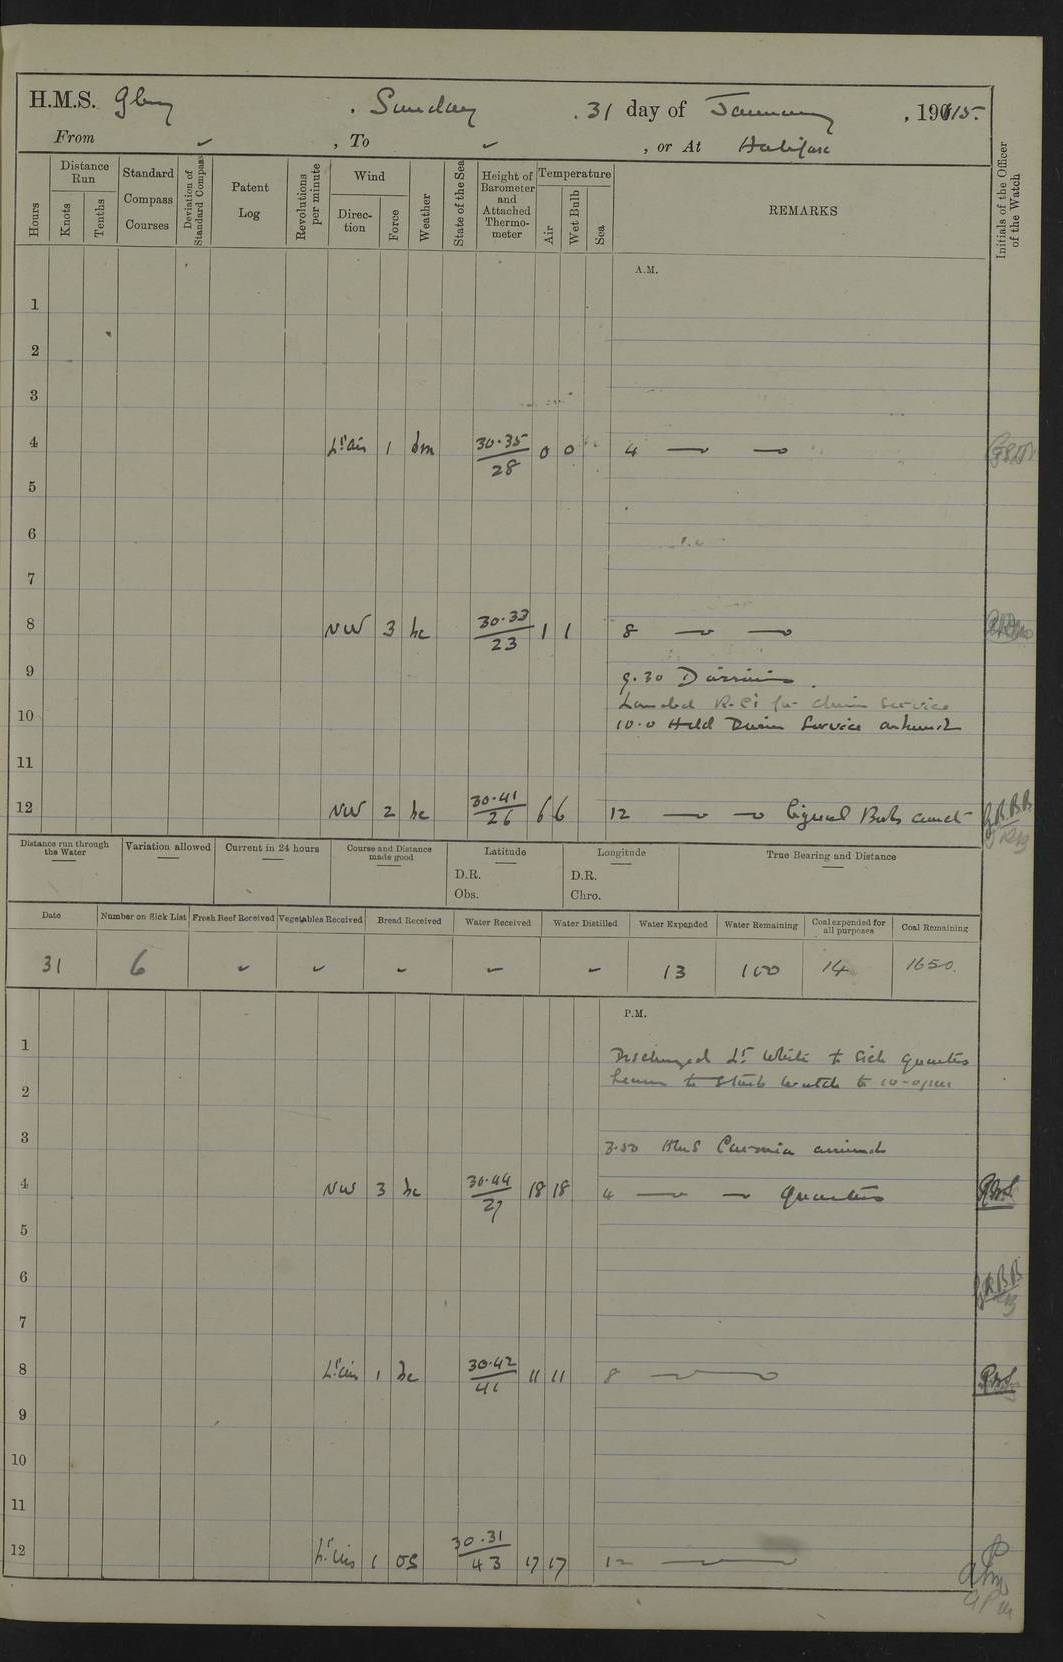 H.M.S. Glory . Sunday . 31 day of January , 1915.
From ✓ , To ✓ , or At Halifax
Hours
Distance Run
Knots
Tenths
Standard Compass Courses
Deviation of Standard Compass
Patent Log
Revolutions per minute
Wind
Direc-tion
Force
Weather
State of the Sea
Height of Barometer and Attached Thermo-meter
Temperature
Air
Wet Bulb
Sea
REMARKS
Initials of the Officer of the Watch
A.M.
1
2
3
4 Lt. air 1 bm 30.35/28 0 0 4
5
6
7
8 NW 3 bc 30.33/23 1 1 8
9 9.30 Divisions.
Landed R.Cs for divine service
10 10.0 Held Divine Service
11
12 NW 2 bc 30.41/26 6 6 12 Signal Bos'n
Distance run through the Water
Variation allowed
Current in 24 hours
Course and Distance made good
Latitude
Longitude
True Bearing and Distance
D.R. D.R.
Obs. Chro.
Date
Number on Sick List
Fresh Beef Received
Vegetables Received
Bread Received
Water Received
Water Distilled
Water Expended
Water Remaining
Coal expended for all purposes
Coal Remaining
31 6 ✓ ✓ ✓ ✓ ✓ 13 100 14 1650.
P.M.
1 Discharged Lt. White to Sick Quarters
2 Leave to Starb watch to 10-0pm
3 3.50 HMS Caronia arrived
4 NW 3 bc 30.44/27 18 18 4 Quarters
5
6
7
8 Lt. air 1 bc 30.42/41 11 11 8
9
10
11
12 Lt. airs 1 os 30.31/43 17 17 12